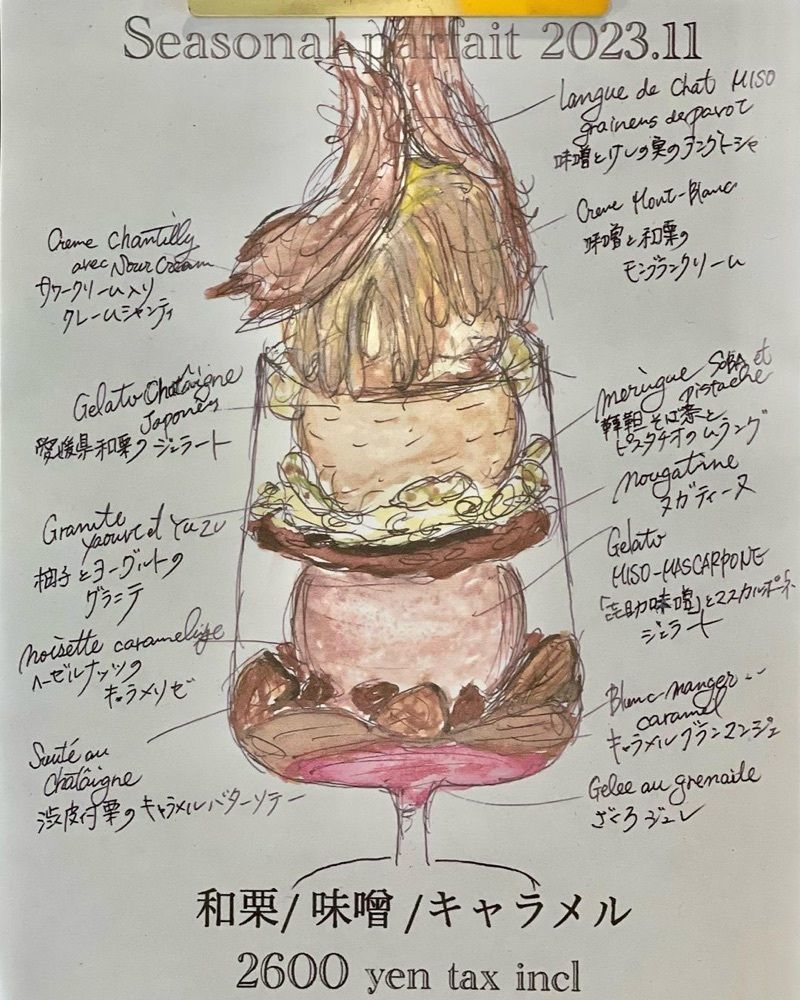 Seasonal parfait 2023.11
Langue de Chat MISO
graineus de pavot
味噌とけしの実のラングドシャ
Creme Mont-Blanc
味噌と和栗の
モンブランクリーム
Creme Chantilly
avec Sour Cream
サワークリーム入り
クレームシャンティ
Gelato Chatâigne
Japones
愛媛県和栗のジェラート
meringue SOBA et
Pistache
韃靼そば茶と
ピスタチオのムラング
nougatine
ヌガティーヌ
Granite
yaourt et YUZU
柚子とヨーグルトの
グラニテ
Gelato
MISO-MASCARPONE
味噌」とマスカルポーネ
ジェラート
noisette caramelize
ヘーゼルナッツの
キャラメリゼ
Blanc-manger
caramel
キャラメルブランマンジェ
Sauté au
Chatâigne
渋皮付栗のキャラメルバターソテー
Gelee au grenade
ざくろジュレ
和栗/味噌/キャラメル
2600 yen tax incl